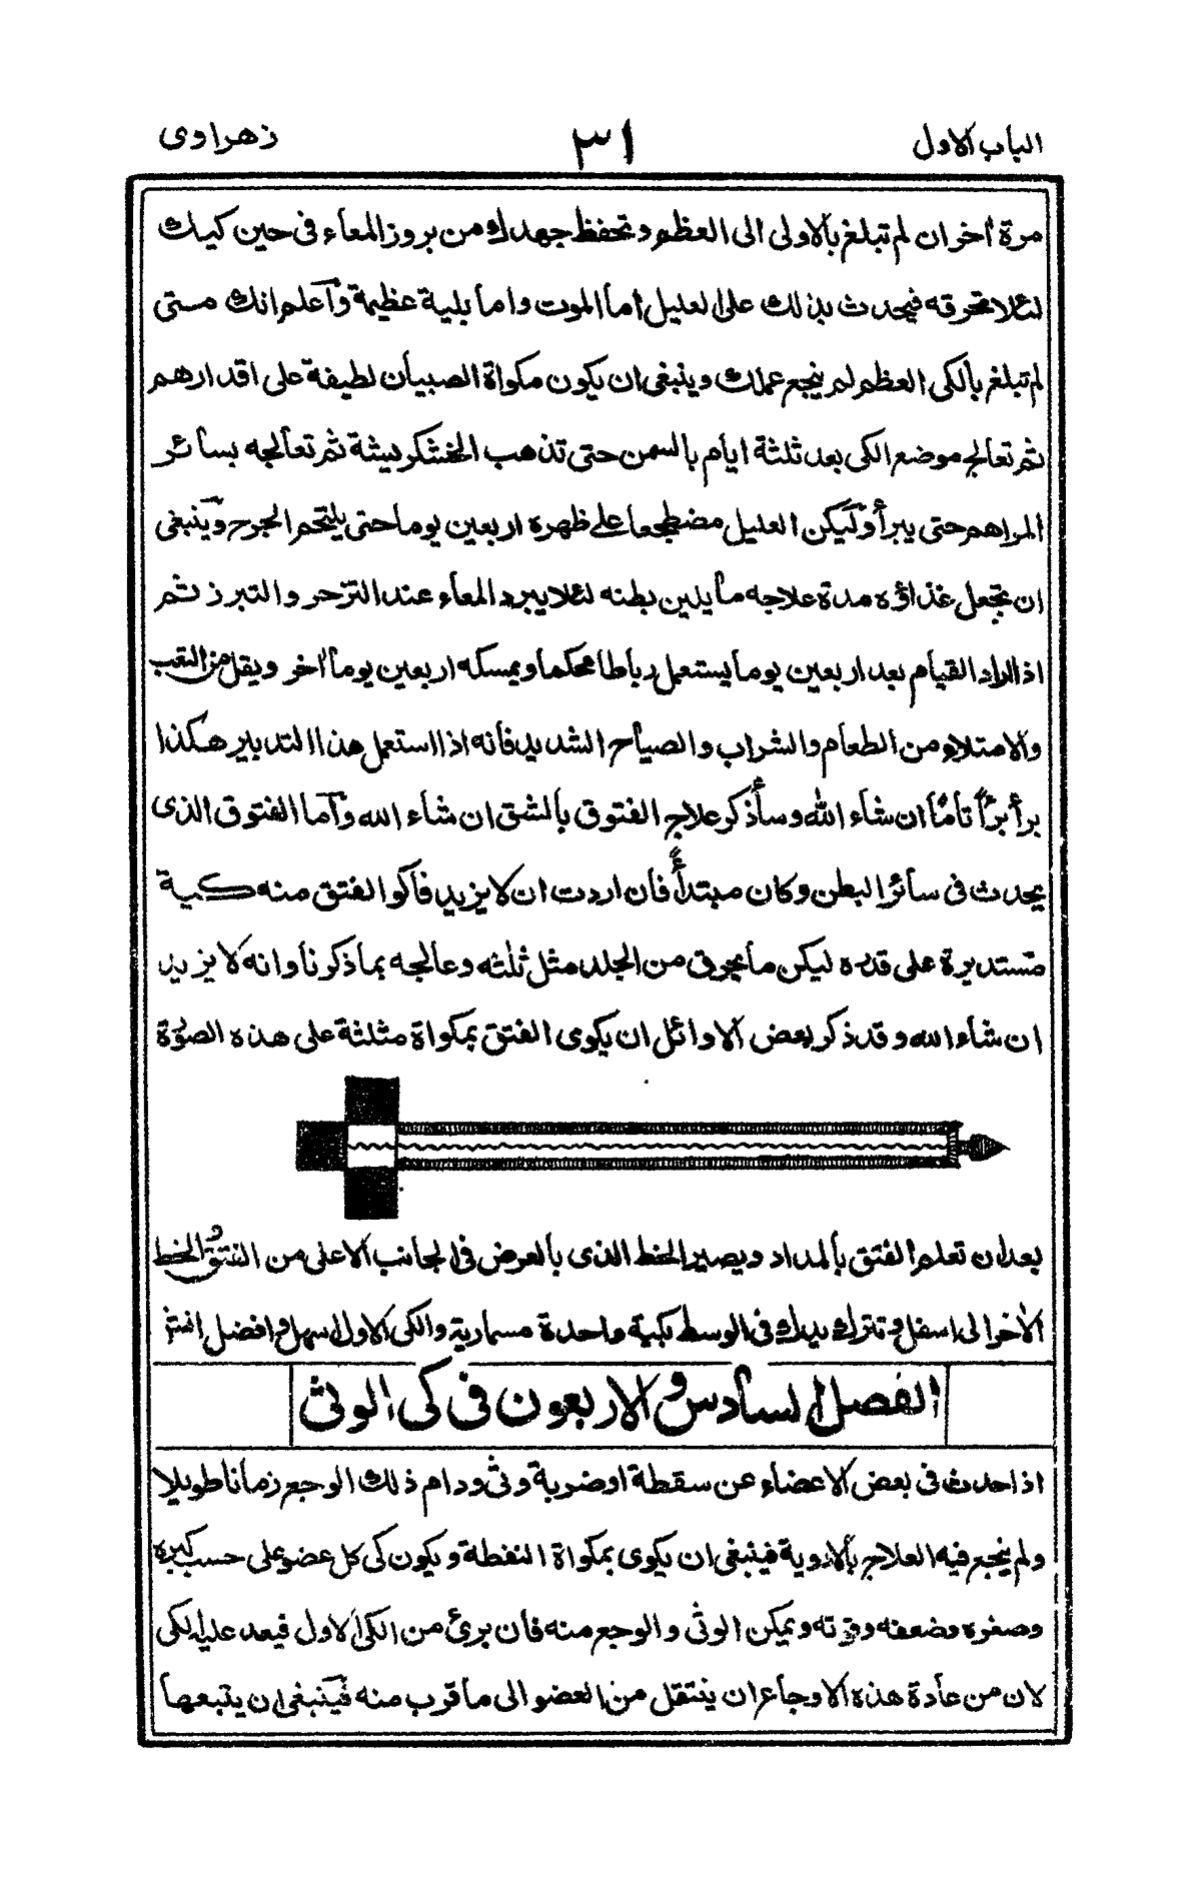 الباب الاول ٣١ زهراوى
مرة اخر ان لم تبلغ بالاولى الى العظم وتحفظ جهدك من بروز المعاء فى حين كيك
لئلا تحرقه فيحدث بذلك على العليل اما الموت واما بلية عظيمة وآعلم انك متى
لم تبلغ بالكى العظم لم ينجع عملك وينبغى ان يكون مكواة الصبيان لطيفة على اقدارهم
ثم تعالج موضع الكى بعد ثلثة ايام بالسمن حتى تذهب الخشكريشة ثم تعالجه بسائر
المراهم حتى يبرأ وليكن العليل مضطجعا على ظهره اربعين يوما حتى يلتحم الجرح وينبغى
ان تجعل غذاؤه مدة علاجه ما يلين بطنه لئلا يبرد المعاء عند التزحر والتبرز ثم
اذا اراد القيام بعد اربعين يوما يستعمل رباطا محكما ويمسكه اربعين يوما اخر ويقل من التعب
والامتلاء من الطعام والشراب والصياح الشديد فانه اذا استعمل هذا التدبير هكذا
برأ برأً تامًا ان شاء الله وسأذكر علاج الفتوق بالشق ان شاء الله وآما الفتوق الذى
يحدث فى سائر البطن وكان مبتدأً فان اردت ان لا يزيد فاكو الفتق منه كية
مستديرة على قدره ليكن ما يحرق من الجلد مثل ثلثه وعالجه بما ذكرنا وانه لا يزيد
ان شاء الله وقد ذكر بعض الاوائل ان يكوى الفتق بمكواة مثلثة على هذه الصورة
بعد ان تعلم الفتق بالمداد ويصير الخط الذى بالعرض فى الجانب الاعلى من الفتق والخط
الاخر الى اسفل وتترك يدك فى الوسط بكية واحدة مسمارية والكى الاول اسهل وافضل انشز
الفصل السادس والاربعون فى كى الوثى
اذا حدث فى بعض الاعضاء عن سقطة او ضربة وثى ودام ذلك الوجع زمانا طويلا
ولم ينجع فيه العلاج بالادوية فينبغى ان يكوى بمكواة النقطة ويكون كى كل عضو على حسب كبره
وصغره وضعفه وقوته ويمكن الوثى والوجع منه فان برئ من الكى الاول فيعد عليه الكى
لان من عادة هذه الاوجاع ان ينتقل من العضو الى ما قرب منه فينبغى ان يتبعها